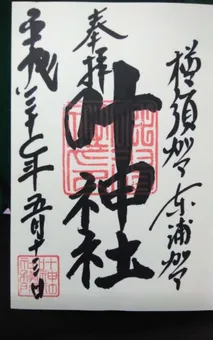 横須賀東浦賀
奉拝
叶神社
平成二十七年五月十三日